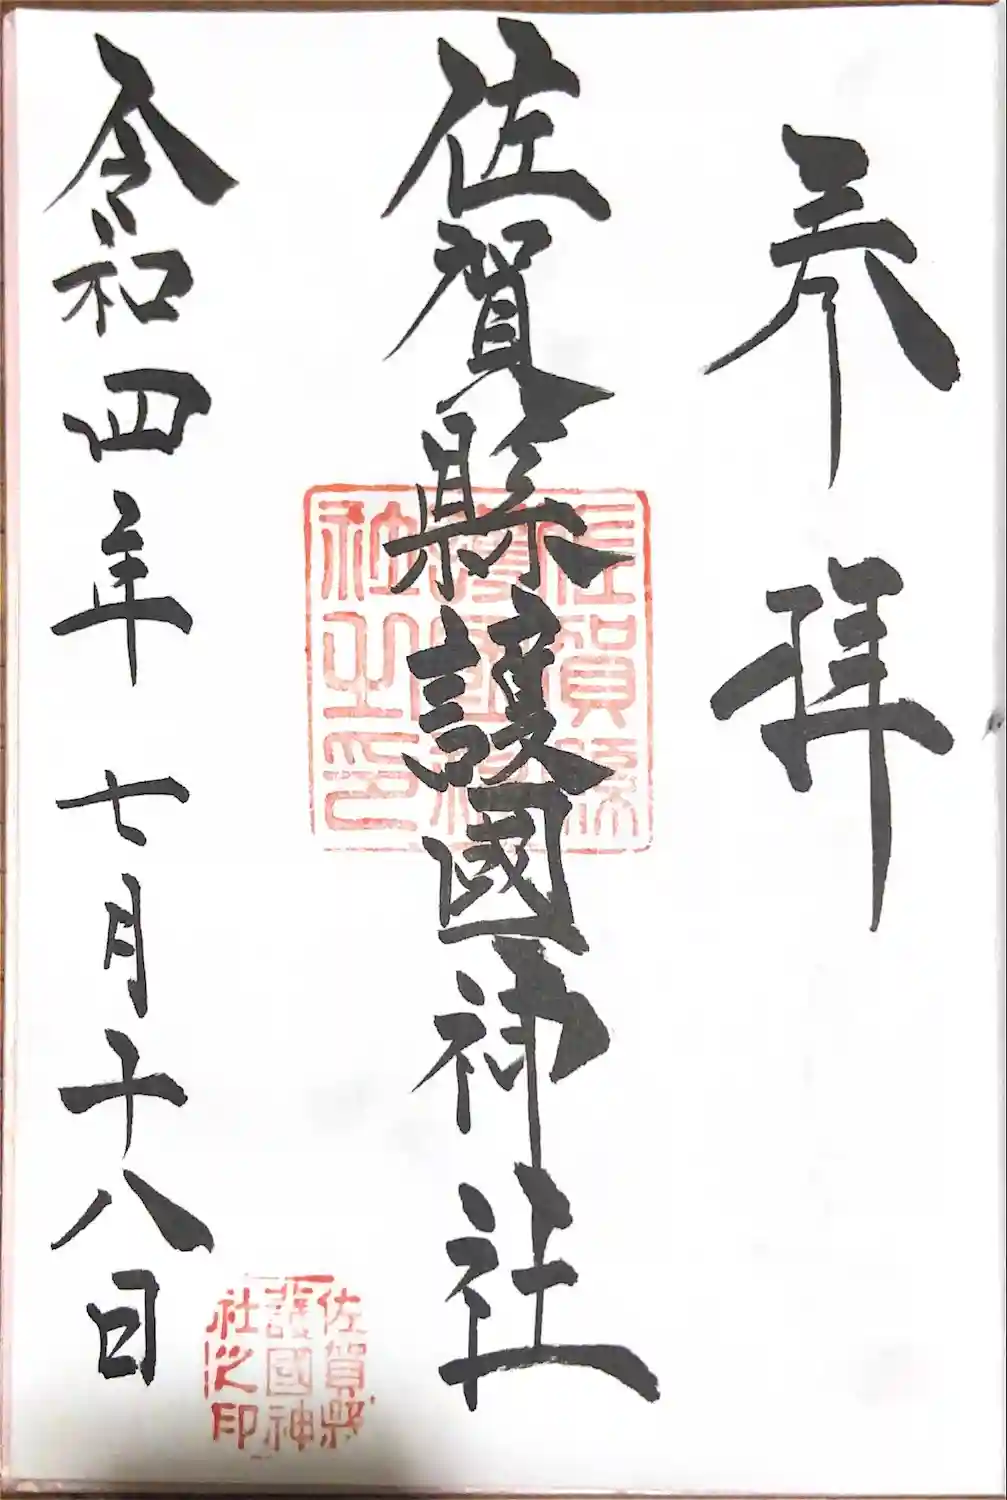 奉拝
佐賀縣護國神社
佐賀縣
護國神
社之印
令和四年七月十八日
佐賀縣
護國神
社之印